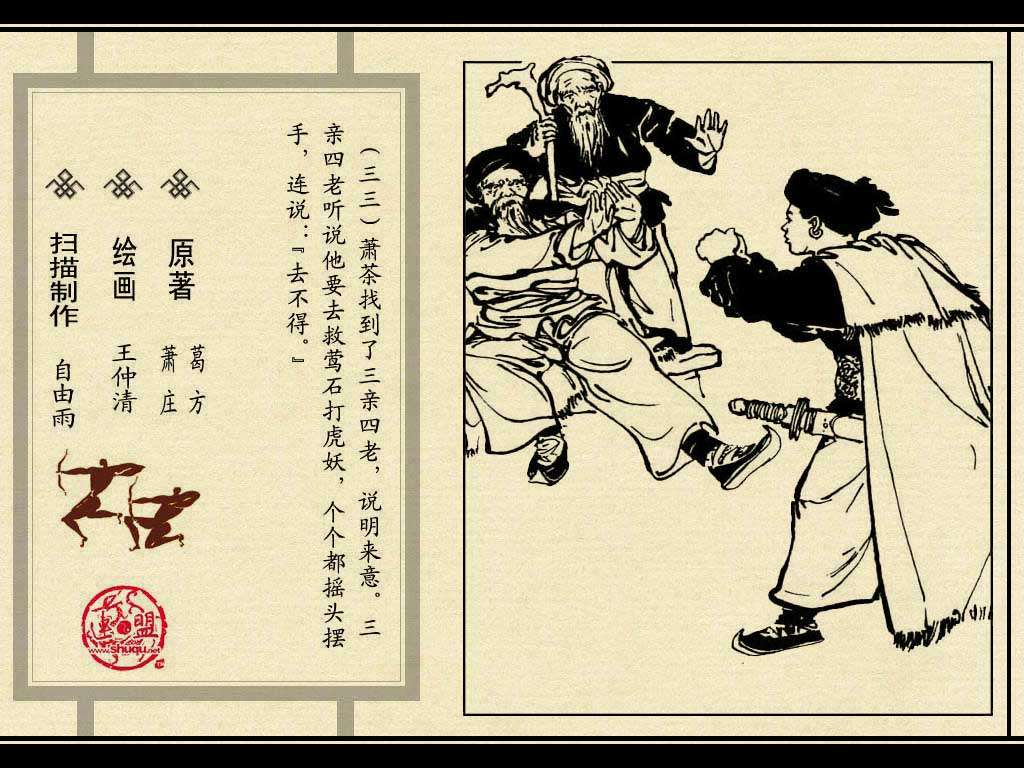 （三三）萧茶找到了三亲四老，说明来意。三
亲四老听说他要去救莺石打虎妖，个个都摇头摆
手，连说：『去不得。』
原著 葛方
萧庄
绘画 王仲清
扫描制作 自由雨
連盟
www.shuqu.net